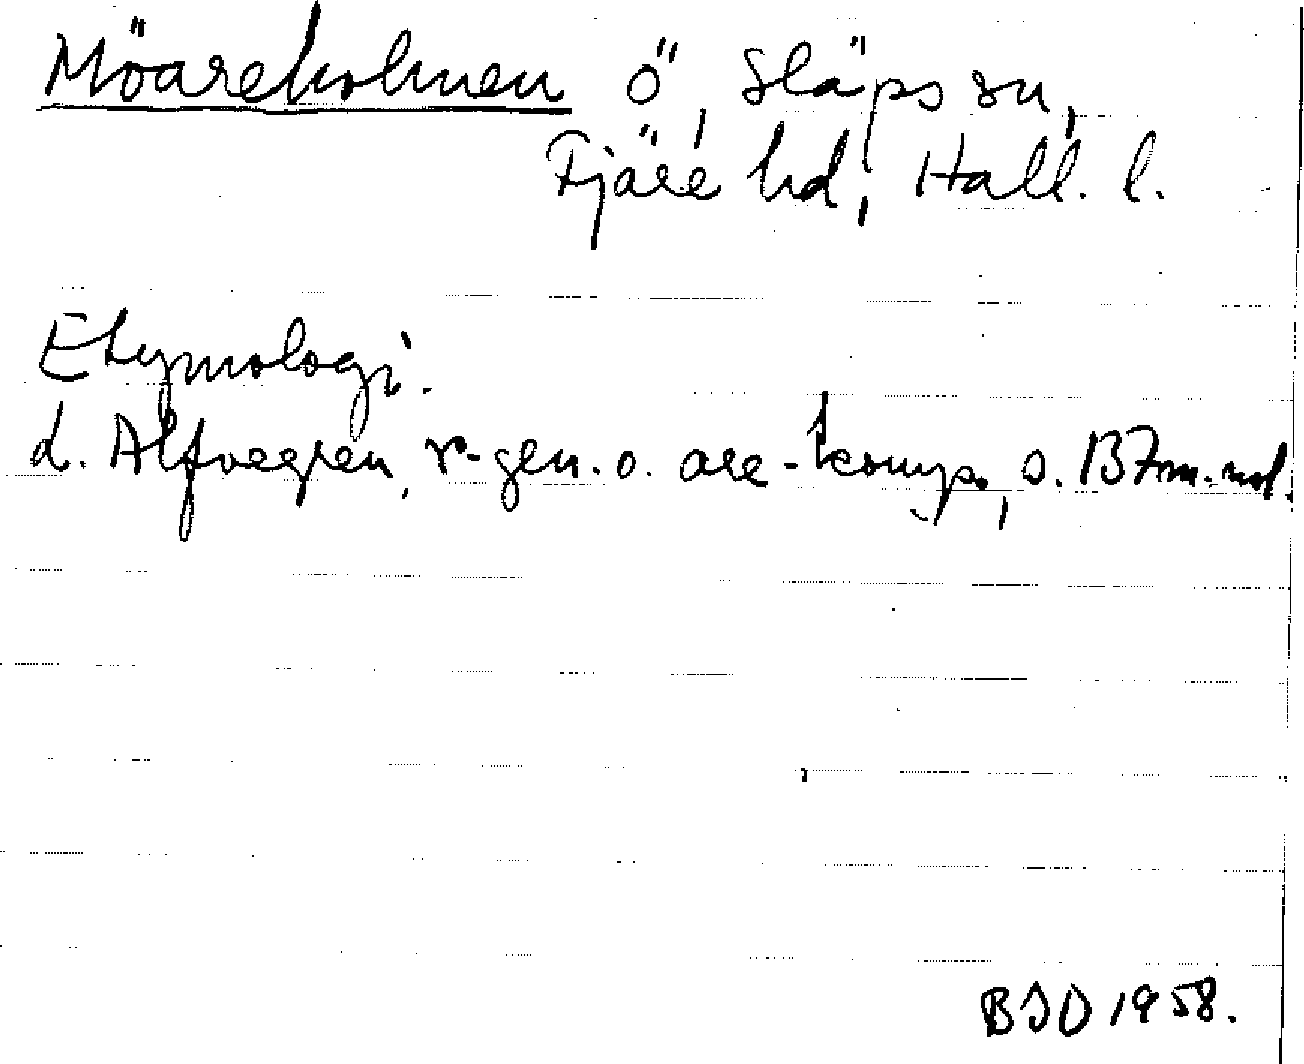 Möareholmen ö, Släps sn,
Fjäre hd, Hall. l.
Etymologi.
d. Alfvegren, r-gen. o. are-komp., s.
BSD 1958.